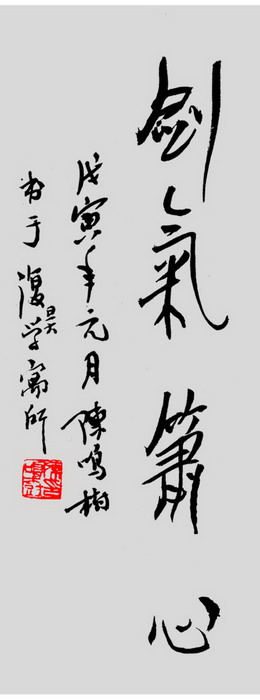 劍氣簫心
戊寅年元月陳鳴樹
书于復旦大学寓所